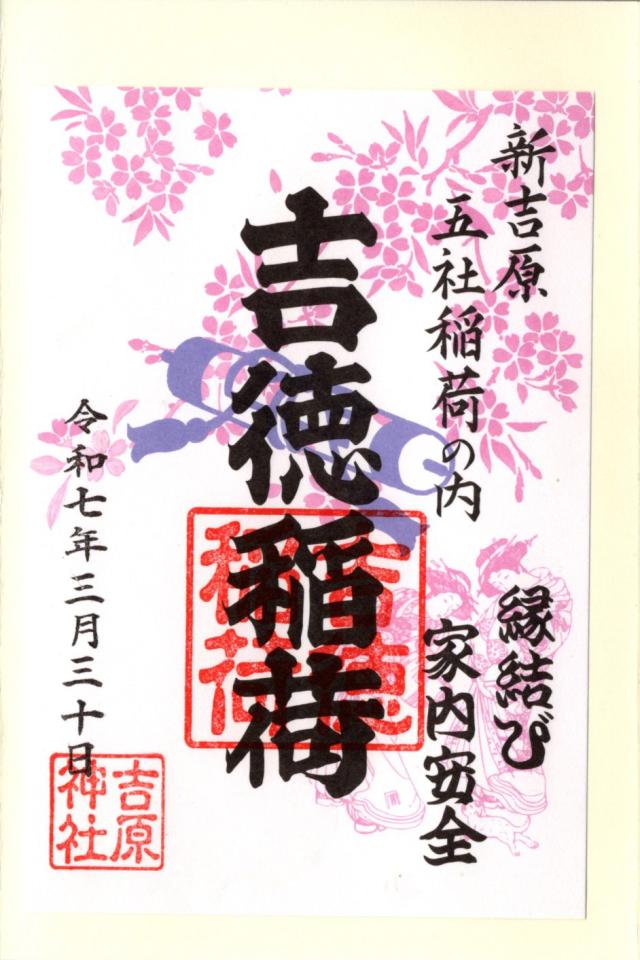 新吉原
五社稲荷の内
縁結び
家内安全
吉徳稲荷
吉徳
稲荷
令和七年三月三十日
吉原
神社